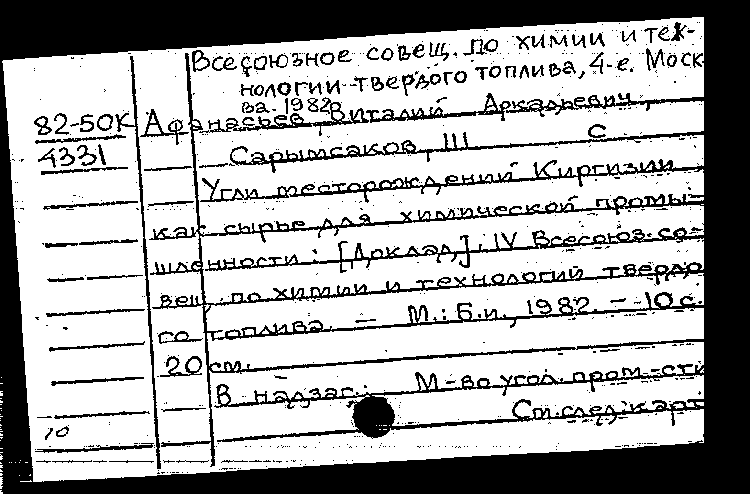 Всесоюзное совещ. по химии и тех-
нологии твердого топлива, 4-е. Моск
ва. 1982г
82-50К Афанасьев, Виталий Аркадьевич,
4331 Сарымсаков, Ш С
Угли месторождений Киргизии
как сырье для химической промы-
шленности: [Доклад]. IV Всесоюз. со-
вещ. по химии и технологий твердо
го топлива. — М.: Б.и., 1982. — 10 с.
20 см.
В надзаг.: М-во угол. пром-сти
См.след.карт
10